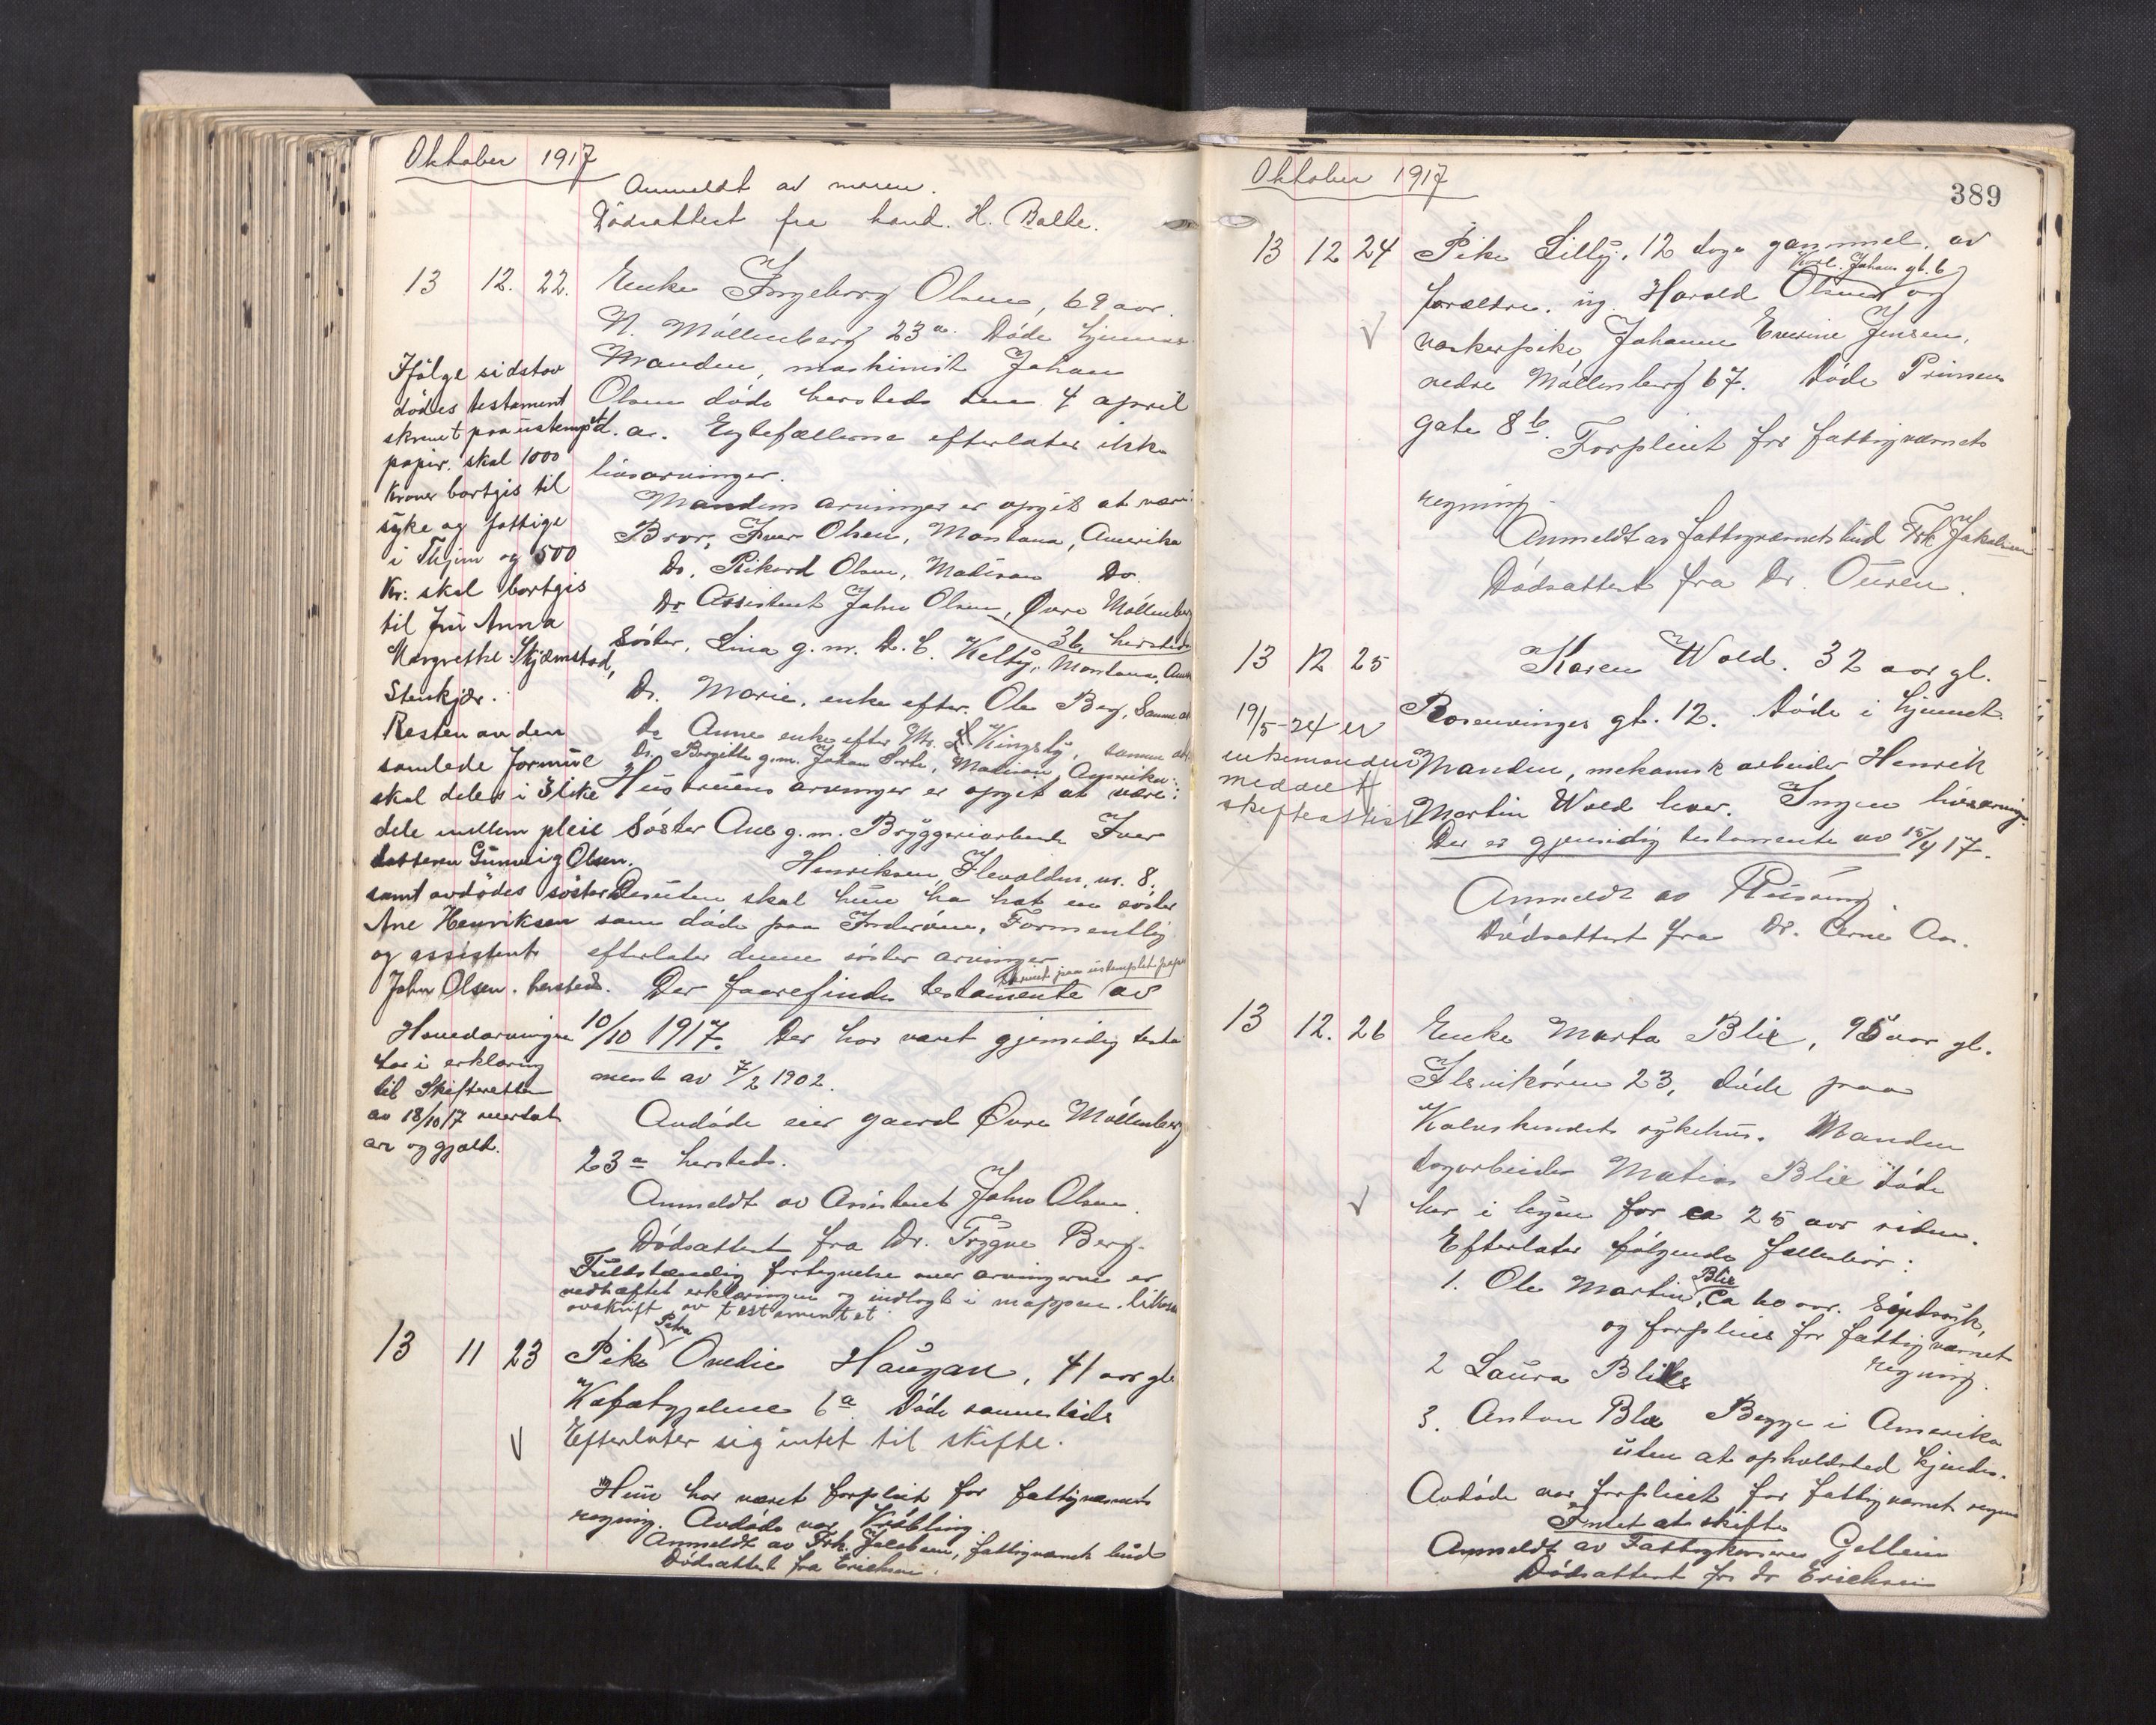 Oktober 1917
Anmeldt av moren.
Dödsattest fra kand. H. Balke.
13 12. 22. Enke Ingeborg Olsen, 69 aar.
N. Möllenberg 23a. Döde hjemme
Manden, maskinist Johan
Olsen döde hersteds den 4 april
d. ar. Egtefællerne efterlater ikke
livsarvinger.
Mandens arvinger er opgit at være:
Bror, Iver Olsen, Montana, Amerika
Do, Rikard Olsen, Madison Do.
Do Assistent John Olsen, Øvre Möllenberg
36 hersteds
Söster, Lina g.m. D. C. Kelty, Montana, Am
Do. Marie, enke efter Ole Berg, Samme
do Anne enke efter Kingsly, samme
Do, Bergitte g.m. Johan Sorte, Madison, Amerika.
Hustruens arvinger er opgit at være:
Söster Ane g.m. Bryggeriarbeider Iver
Henriksen, Ilevolden nr. 8.
Desuten skal hun ha hat en söster
som döde paa Inderöen, Formentlig
efterlater denne söster arvinger
skrevet paa ustemplet papir
Der forefindes testamente av
10/10 1917. Der har været gjensidig testa
mente av 7/2 1902.
Avdöde eier gaard Øvre Möllenberg
23a hersteds.
Anmeldt av Assistent John Olsen.
Dödsattest fra Dr. Trygve Berg.
Fuldstændig fortegnelse over arvingerne er
vedhæftet erklæringen og indlagt i mappen. likesaa
avskrift av testamentet
Ifölge sidstav
dödes testament
skrevet paa ustemplet
papir. skal 1000
kroner bortgis til
syke og fattige
i Thjem og 500
kr: skal bortgis
til fru Anna
Margrethe Skjæmstad,
Stenkjær.
Resten av den
samlede formue
skal deles i 3 like
dele mellem pleie
datteren Gunvig Olsen.
samt avdödes söster
Ane Henriksen
og assistent
John Olsen. hersteds.
Hovedarvingene
har i erklæring
til Skifteretten
av 18/10 17 overtat
arv og gjæld.
13 11 23 Pike Petra Ovedie Haugan, 41 aar gl
6a Döde sammesteds
Efterlater sig intet til skifte.
Hun har været forpleiet for fattigvæsnets
regning. Avdöde var Kröbling.
Anmeldt av Frk. Jakobsen, fattigvæsnets bud
Dödsattest fra Erichsen.
Oktober 1917
389
13 12 24 Pike Lilly, 12 dage gammel. av
Karl Johans gt. 6
forældre. ug. Harald Olsen og
vaskerpike Johanne Everine Jensen,
nedre Möllenberg 67. Döde Prinsens
gate 8b. Forpleiet for fattigvæsnets
regning.
Anmeldt av fattigvæsnets bud Frk Jakobsen
Dödsattest fra Dr. Ouren.
13 12 25 Karen Wold. 32 aar gl.
Rosenvinges gt. 12. Döde i hjemmet
Manden, mekanisk arbeider Henrik
Martin Wold lever. Ingen livsarving.
Der er gjensidig testamente av 15/4 17.
Anmeldt av
Dödsattest fra Dr. Arne Aas.
19/5-24 er
enkemanden
meddelt
skifteattest
13 12. 26 Enke Marta Blix, 95 aar gl.
Ilsvikören 23, döde paa
Kalvskindets sykehus. Manden
dagarbeider Matias Blix döde
her i byen for ca 25 aar siden.
Efterlater fölgende fællesbör:
1. Ole Martin Blix, ca 60 aar. Sindssyk,
og forpleies for fattigvæsnet
regning.
2 Laura Blix
3. Anton Blix Begge i Amerika
uten at opholdsted kjendes.
Avdöde var forpleiet for fattigvæsnets regning
Intet at skifte
Anmeldt av Fattigkasserer Gellein
Dödsattest fra dr Erichsen